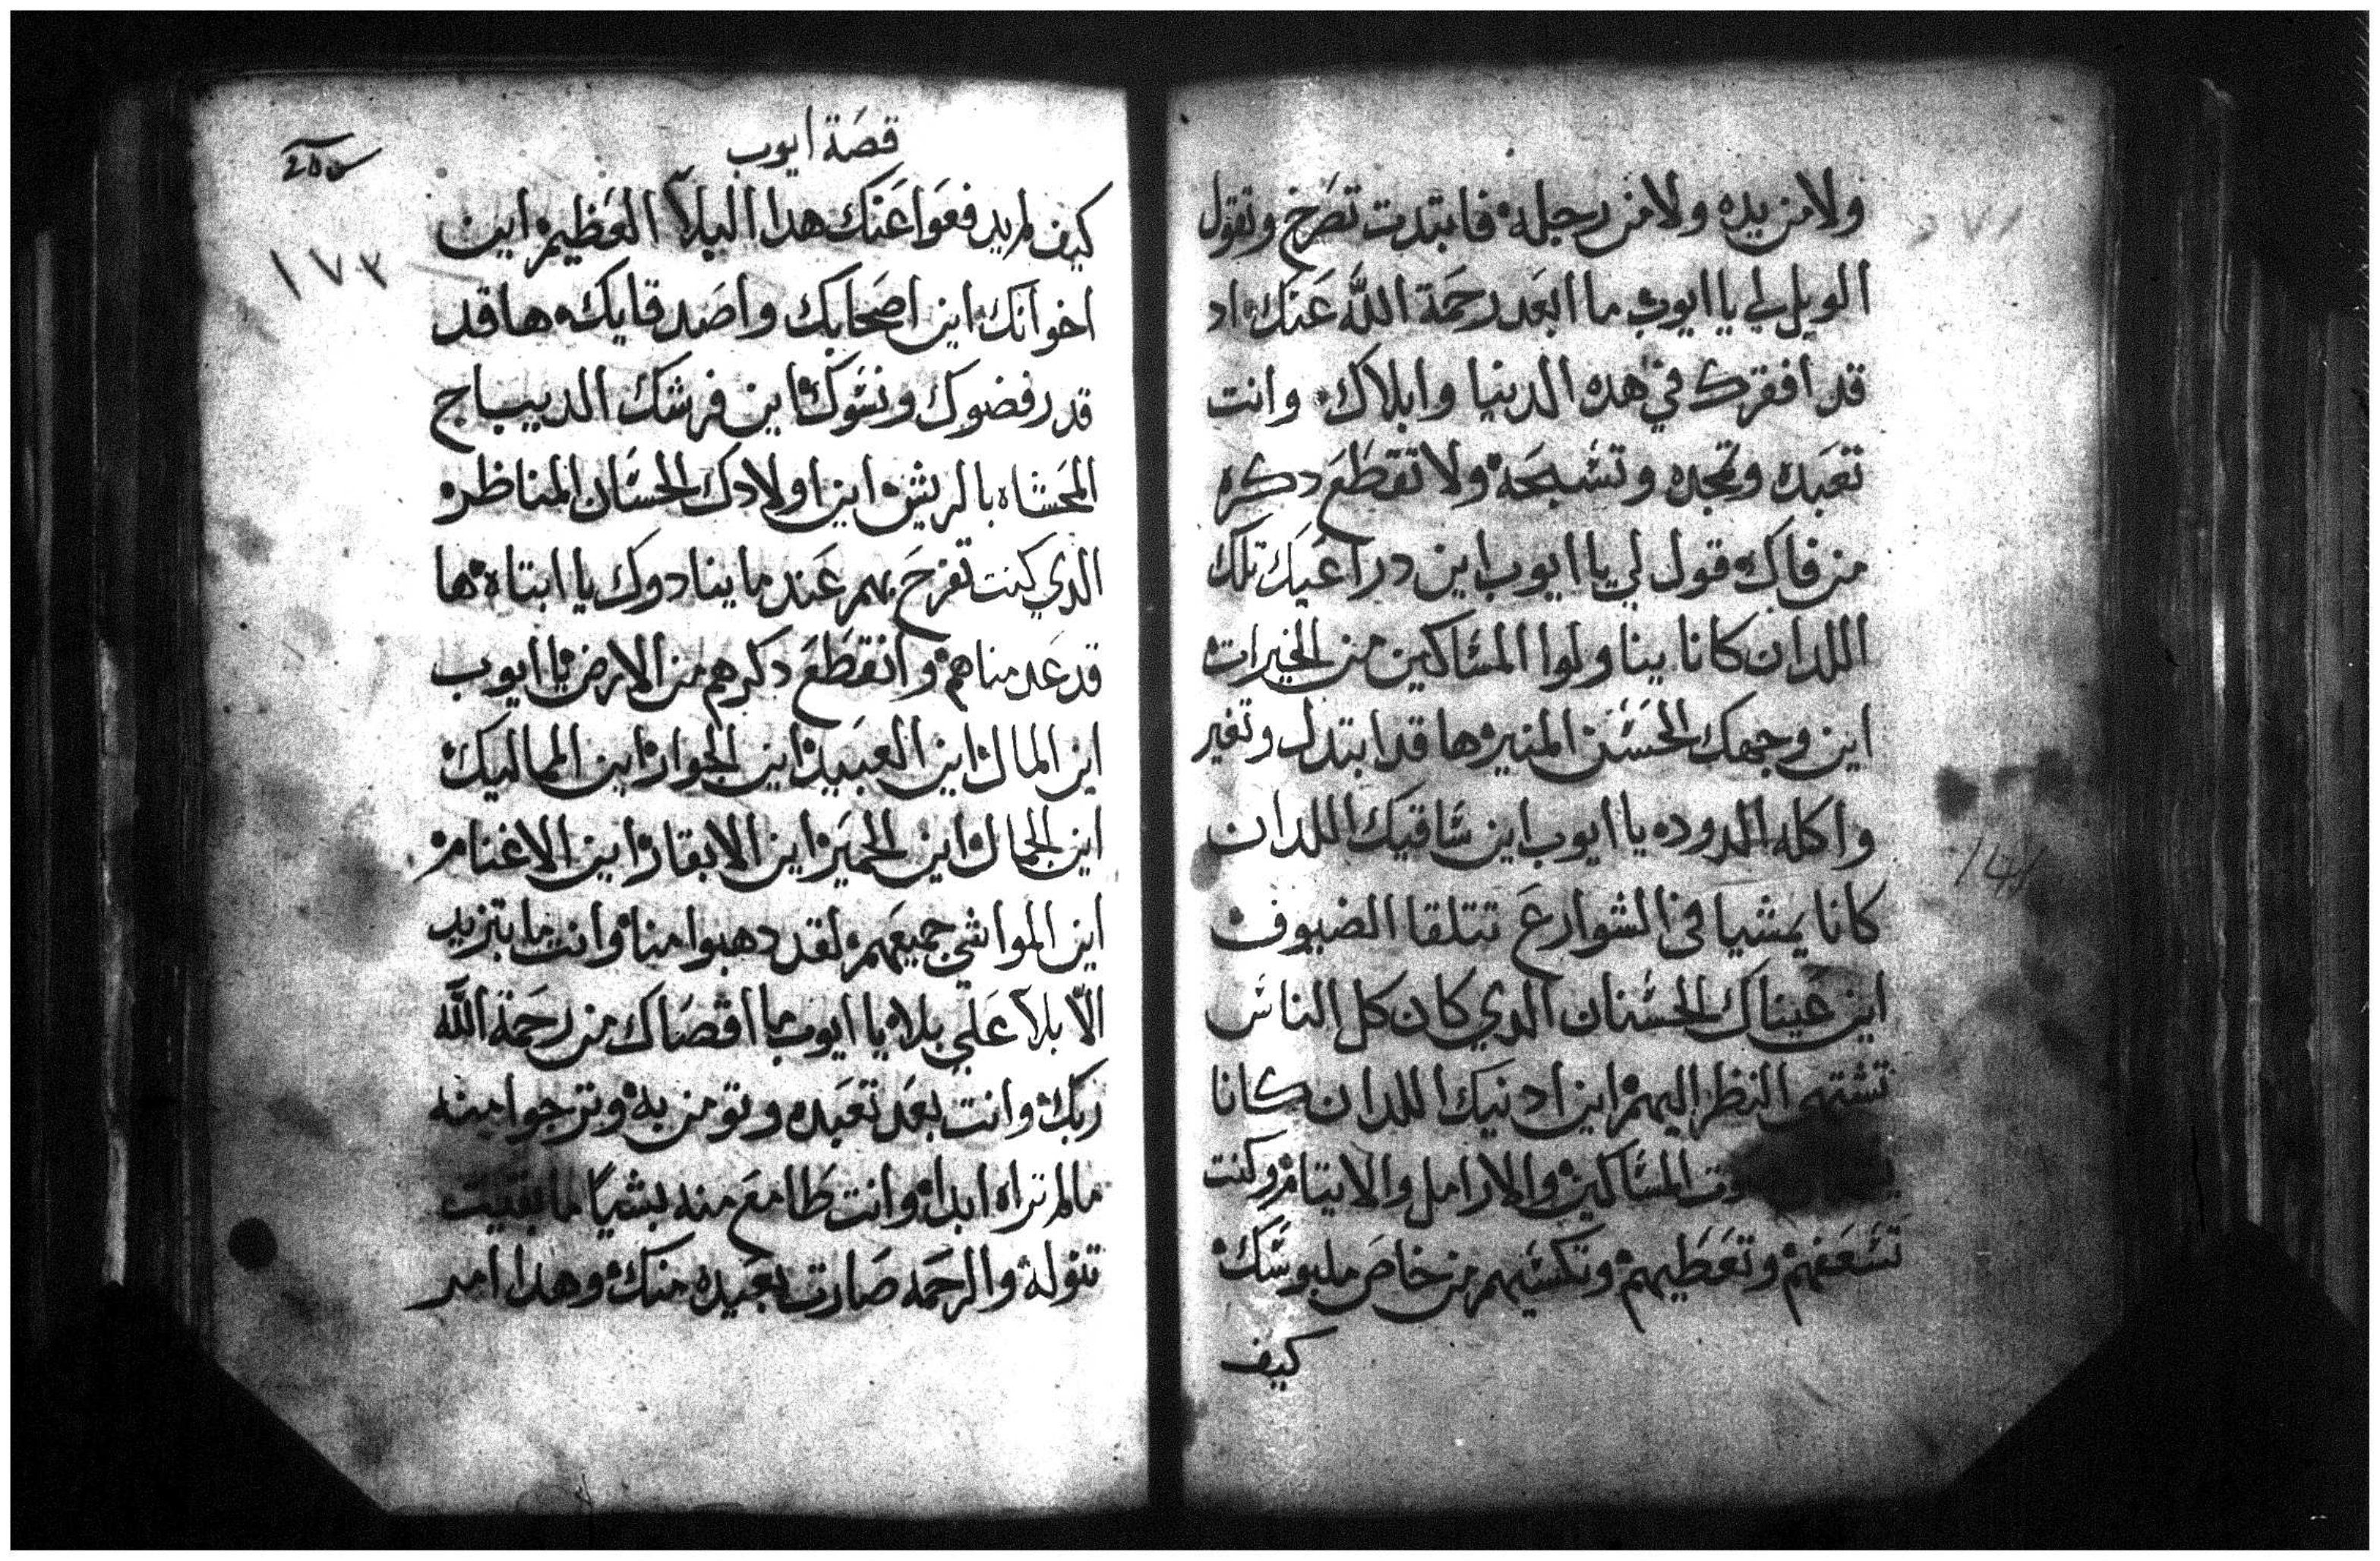 ولا من يده ولا من رجله فابتدت تصرخ وتقول
الويل لي يا ايوب ما ابعد رحمة الله عنك اد
قد افقرك في هده الدنيا وابلاك وانت
تعبده وتمجده وتسبحه ولا تقطع دكره
من فاك قول لي يا ايوب اين دراعيك تلك
اللدان كانا يناولوا المساكين من الخيرات
اين وجهك الحسن المنير ها قد ابتدل وتغير
واكله الدوده يا ايوب اين ساقيك اللدان
كانا يمشيا في الشوارع تتلقا الضيوف
اين عيناك الحسنان الدي كان كل الناس
تشتهي النظر اليهم اين ادنيك اللدان كانا
المساكين والارامل والايتام وكنت
تسعفهم وتعطيهم وتكسيهم من خاص ملبوسك
كيف
قصة ايوب
١٧٣
كيف لم يدفعوا عنك هدا البلآ العظيم اين
اخوانك اين اصحابك واصدقايك ها قد
قد رفضوك ونسوك اين فرشك الديباج
المحشاه بالريش اين اولادك الحسان المناظر
الدي كنت تفرح بهم عند ما ينادوك يا ابتاه ها
قد عدمناهم وانقطع دكرهم من الارض يا ايوب
اين المال اين العبيد اين الجوار اين المماليك
اين الجمال اين الحمير اين الابقار اين الاغنام
اين المواشي جميعهم لقد دهبوا منا وانت ما بتزيد
الا بلآ علي بلاء يا ايوب ما اقصاك من رحمة الله
ربك وانت بعد تعبده وتومن به وترجوا منه
مالم تراه ابدا وانت طامع منه بشيا ما بقيت
تنوله والرحمه صارت بعيده منك وهدا امر